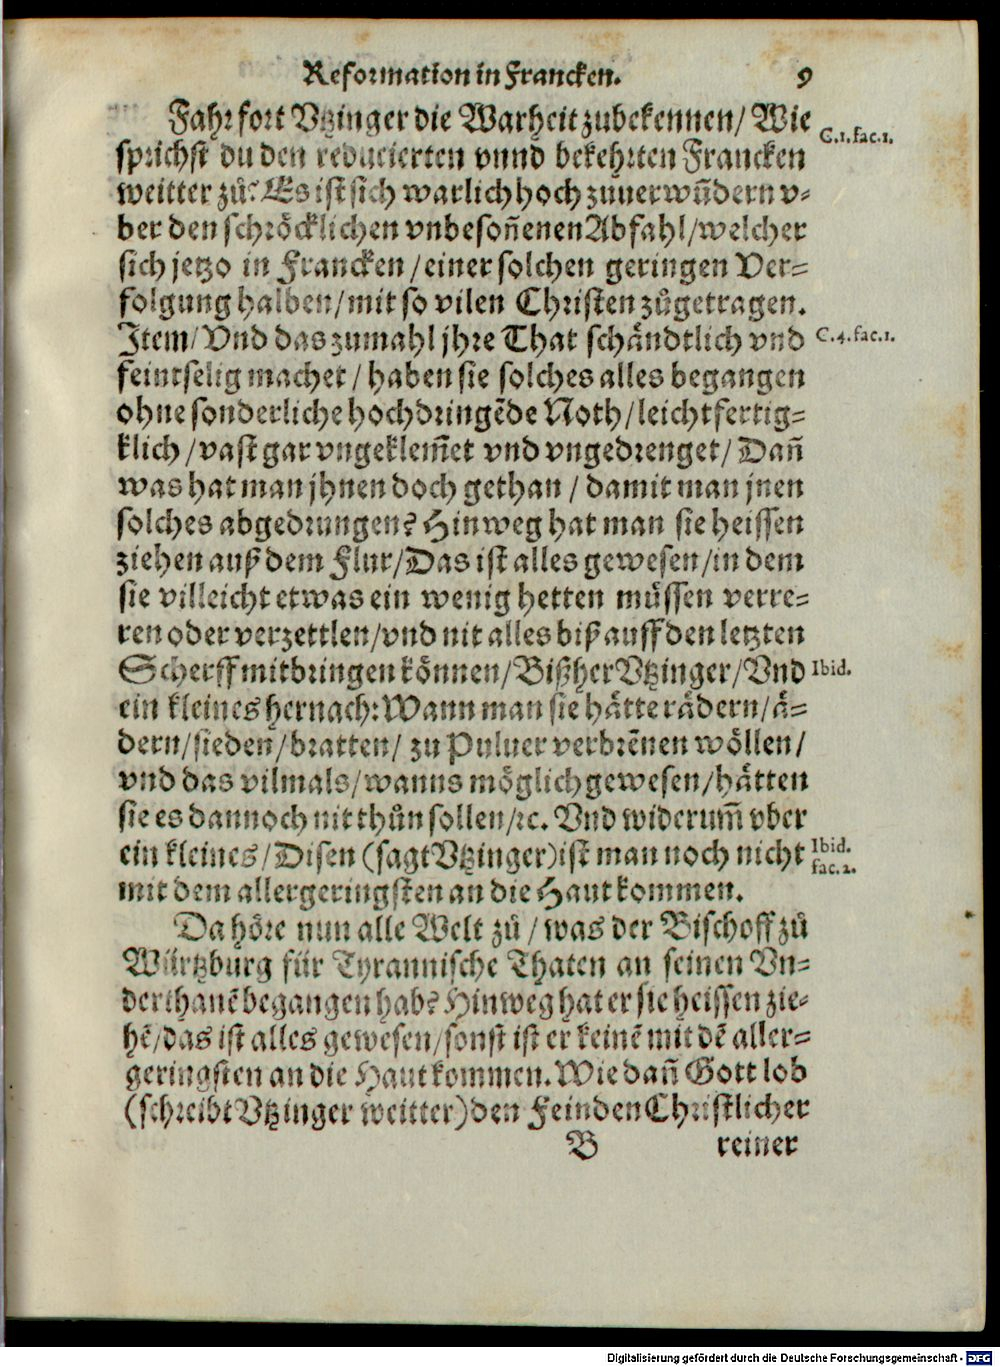 Reformation in Francken. 9
Fahr fort Vtzinger die Warheit zubekennen/ Wie C.1.fac.1.
sprichst du den reducierten vnnd bekehrten Francken
weitter zů? Es ist sich warlich hoch zuuerwũdern v-
ber den schröcklichen vnbesoñenen Abfahl/welcher
sich jetzo in Francken/einer solchen geringen Ver-
folgung halben/mit so vilen Christen zůgetragen.
Item/ Vnd das zumahl jhre That schändtlich vnd C.4.fac.1.
feintselig machet/ haben sie solches alles begangen
ohne sonderliche hochdringẽde Noth/leichtfertig-
klich/vast gar vngeklem̃et vnd vngedrenget/ Dañ
was hat man jhnen doch gethan/ damit man jnen
solches abgedrungen? Hinweg hat man sie heissen
ziehen auß dem Flur/Das ist alles gewesen/in dem
sie villeicht etwas ein wenig hetten müssen verre-
ren oder verzettlen/vnd nit alles biß auff den letzten
Scherff mitbringen können/Bißher Vtzinger/Vnd Ibid.
ein kleines hernach: Wann man sie hätte rädern/ä-
dern/sieden/bratten/ zu Puluer verbrẽnen wöllen/
vnd das vilmals/wanns möglich gewesen/hätten
sie es dannoch nit thůn sollen/ꝛc. Vnd widerum̃ vber
ein kleines/ Disen (sagt Vtzinger) ist man noch nicht Ibid. fac.2.
mit dem allergeringsten an die Haut kommen.
Da höre nun alle Welt zů/ was der Bischoff zů
Würtzburg für Tyrannische Thaten an seinen Vn-
derthanẽ begangen hab? Hinweg hat er sie heissen zie-
hẽ/das ist alles gewesen/sonst ist er keinẽ mit dẽ aller-
geringsten an die Haut kommen. Wie dañ Gott lob
(schreibt Vtzinger weitter) den Feinden Christlicher
B reiner
Digitalisierung gefördert durch die Deutsche Forschungsgemeinschaft - DFG